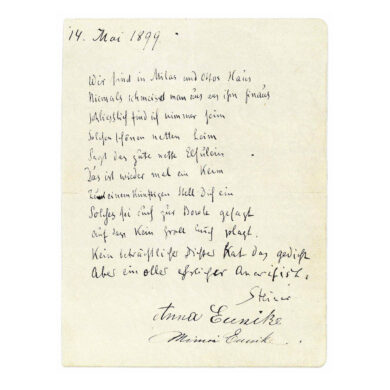 14. Mai 1899.
Wir sind in Milas und Ottos Haus
Niemals schmeisst man uns hinaus
schliesslich find ich nimmer heim
Solchen schönen netten heim
Sagt das gute nette Elfulein
Das ist wieder mal ein Keim
Zu einem künftigen Stell Dich ein
Solches sei Euch zur Bowle gesagt
Auf dass kein Groll Euch plagt.
Kein beträchtlicher Dichter hat das gedicht
Aber ein oller ehrlicher Anarchist.
Steiner
Anna Eunike
Minni Eunik